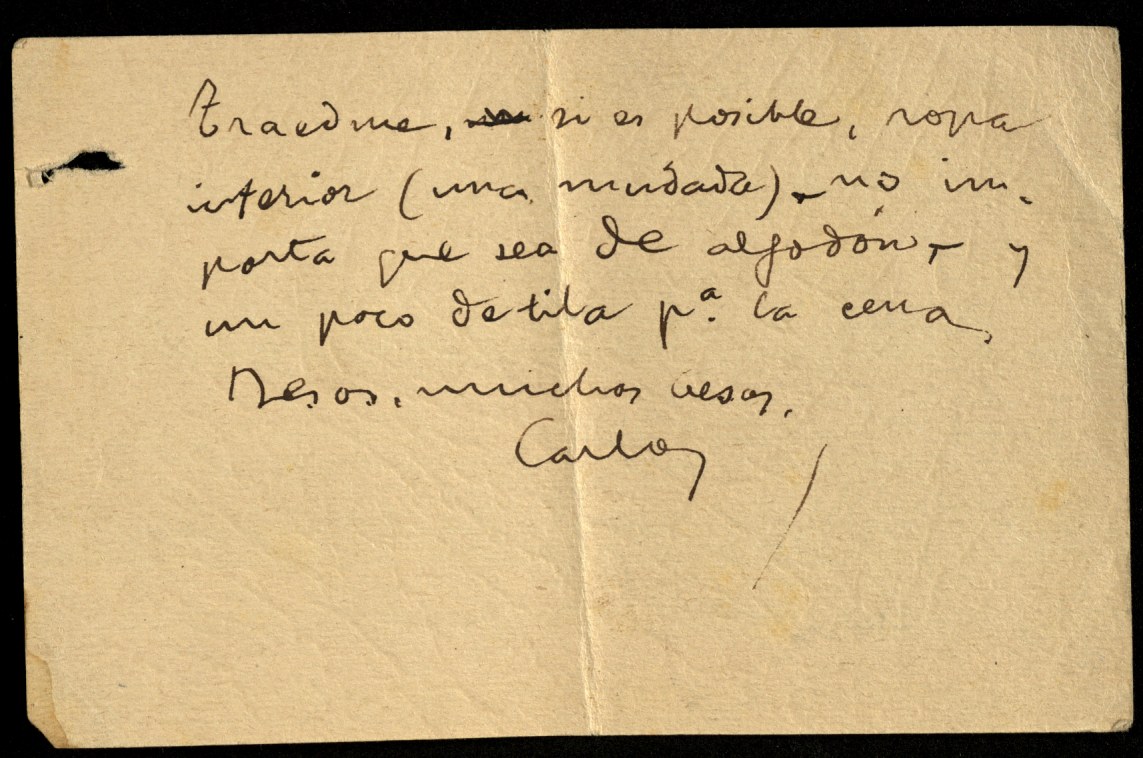 Traedme, si es posible, ropa
interior (una mudada), - no im-
porta que sea de algodón, - y
un poco de tila pª. la cena.
Besos, muchos besos.
Carlos